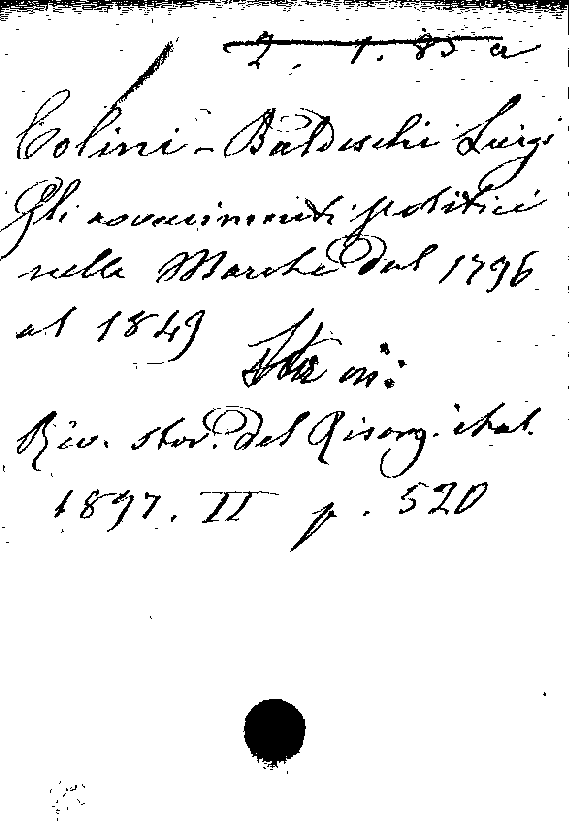 2. 1. 85 a
Colini-Baldeschi Luigi
Gli avvenimenti politici
nelle Marche dal 1796
al 1849
Sta in:
Riv. stor. del Risorg. ital.
1897. II p. 520